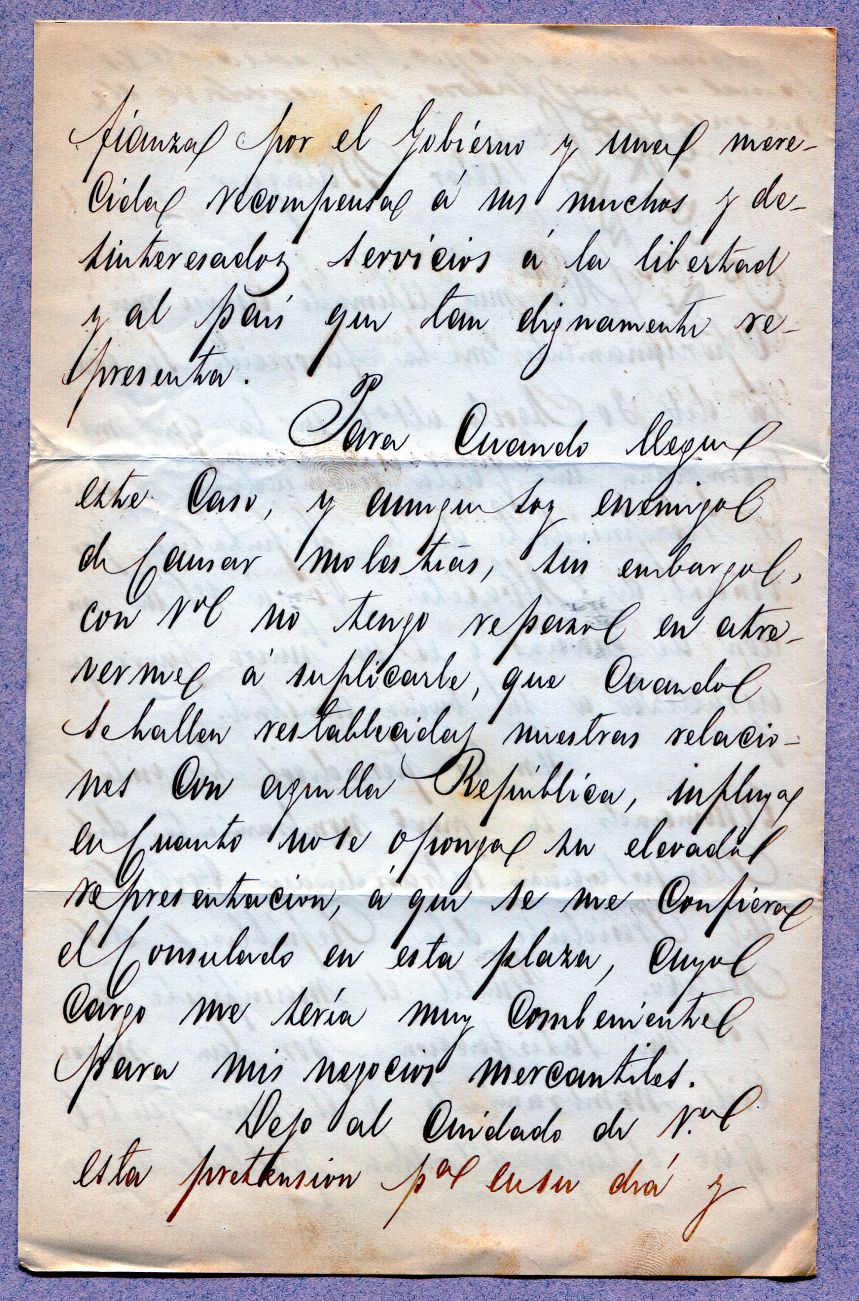 fianza por el Gobierno y una mere-
cida recompensa á sus muchos y de-
sinteresados servicios á la libertad
y al país que tan dignamente re-
presenta.
Para cuando llegue
este caso, y aunque soy enemigo
de causar molestias, sin embargo,
con V.d no tengo reparo en atre-
verme á suplicarle, que cuando
se hallen restablecidas nuestras relacio-
nes con aquella República, influya
en cuanto no se oponga su elevada
representacion, á que se me confiera
el Consulado en esta plaza, cuyo
cargo me sería muy combeniente
para mis negocios mercantiles.
Dejo al cuidado de V.d
esta pretension pa en su día y